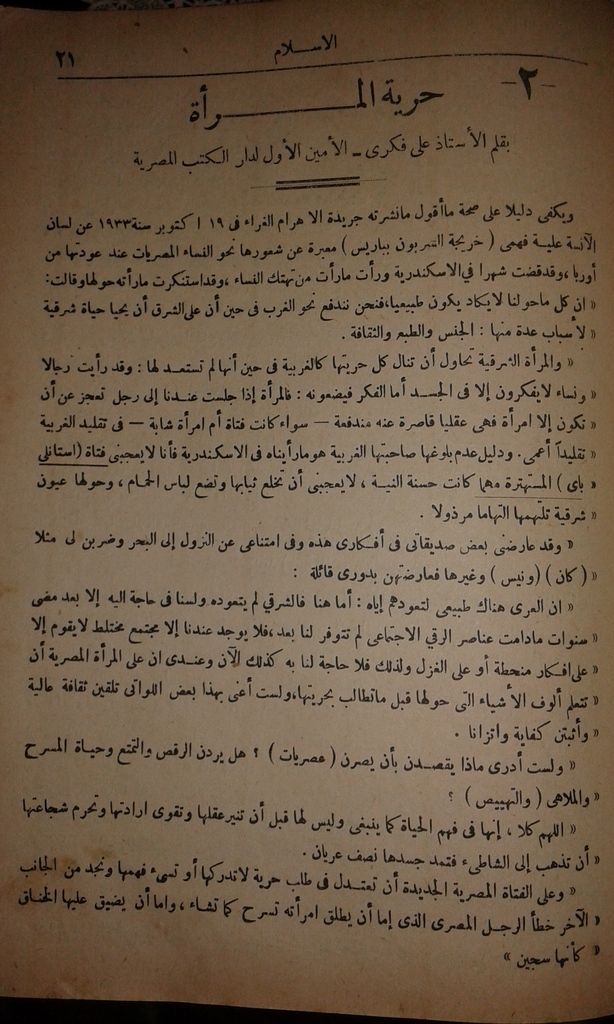 ٢١
الاسلام
- ٢ -
حرية المرأة
بقلم الأستاذ على فكرى ـ الأمين الأول لدار الكتب المصرية
ويكفى دليلا على صحة ماأقول مانشرته جريدة الاهرام الغراء فى ١٩ اكتوبر سنة ١٩٣٣ عن لسان
الآنسة علية فهمى ( خريجة السربون بباريس ) معبرة عن شعورها نحو النساء المصريات عند عودتها من
أوربا ، وقد قضت شهرا في الاسكندرية ورأت مارأت من تهتك النساء ، وقد استنكرت مارأته حولها وقالت :
« ان كل ماحولنا لايكاد يكون طبيعيا ، فنحن نندفع نحو الغرب فى حين أن على الشرق أن يحيا حياة شرقية
« لأسباب عدة منها : الجنس والطبع والثقافة .
« والمرأة الشرقية تحاول أن تنال كل حريتها كالغربية فى حين أنها لم تستعد لها : وقد رأيت رجالا
« ونساء لايفكرون إلا فى الجسد أما الفكر فيضعونه : فالمرأة إذا جلست عندنا إلى رجل تعجز عن أن
« تكون إلا امرأة فهى عقليا قاصرة عنه مندفعة — سواء كانت فتاة أم امرأة شابة — فى تقليد الغربية
« تقليداً أعمى . ودليل عدم بلوغها صاحبتها الغربية هو مارأيناه فى الاسكندرية فأنا لايعجبنى فتاة ( استانلى
« باى ) المستهترة مهما كانت حسنة النية ، لايعجبنى أن تخلع ثيابها وتضع لباس الحمام ، وحولها عيون
« شرقية تلتهمها التهاما مرذولا .
« وقد عارضنى بعض صديقاتى فى أفكارى هذه وفى امتناعى عن النزول إلى البحر وضربن لى مثلا
« ( كان ) ( ونيس ) وغيرها فعارضتهن بدورى قائلة :
« ان العرى هناك طبيعى لتعودهم إياه : أما هنا فالشرقي لم يتعوده ولسنا فى حاجة اليه إلا بعد مضى
« سنوات مادامت عناصر الرقي الاجتماعى لم تتوفر لنا بعد ، فلا يوجد عندنا إلا مجتمع مختلط لايقوم إلا
« على افكار منحطة أو على الغزل ولذلك فلا حاجة لنا به كذلك الآن وعندى ان على المرأة المصرية أن
« تتعلم ألوف الأشياء التى حولها قبل ماتطالب بحريتها ، ولست أعنى بهذا بعض اللواتى تلقين ثقافة عالية
« وأثبتن كفاية واتزانا .
« ولست أدرى ماذا يقصدن بأن يصرن ( عصريات ) ؟ هل يردن الرقص والتمتع وحياة المسرح
« والملاهى ( والتهييص ) ؟
« اللهم كلا ، إنها فى فهم الحياة كما ينبغى وليس لها قبل أن تنير عقلها وتقوى ارادتها وتحرم شجاعتها
« أن تذهب إلى الشاطىء فتمد جسدها نصف عريان .
« وعلى الفتاة المصرية الجديدة أن تعتدل فى طلب حرية لاتدركها أو تسىء فهمها ونجد من الجانب
« الآخر خطأ الرجل المصرى الذى إما أن يطلق امرأته تسرح كما تشاء ، واما أن يضيق عليها الخناق
« كأنها سجين »